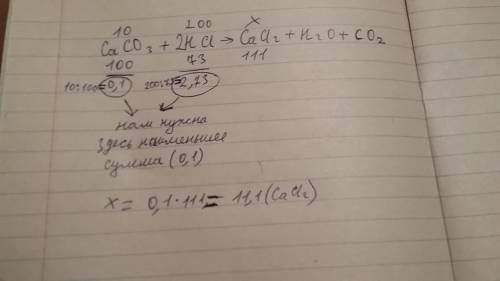 10 200 x
CaCO3 + 2HCl → CaCl2 + H2O + CO2
100 73 111
10:100=0,1 200:73=2,73
нам нужна
здесь наименьшая
сумма (0,1)
x = 0,1·111 = 11,1 (CaCl2)